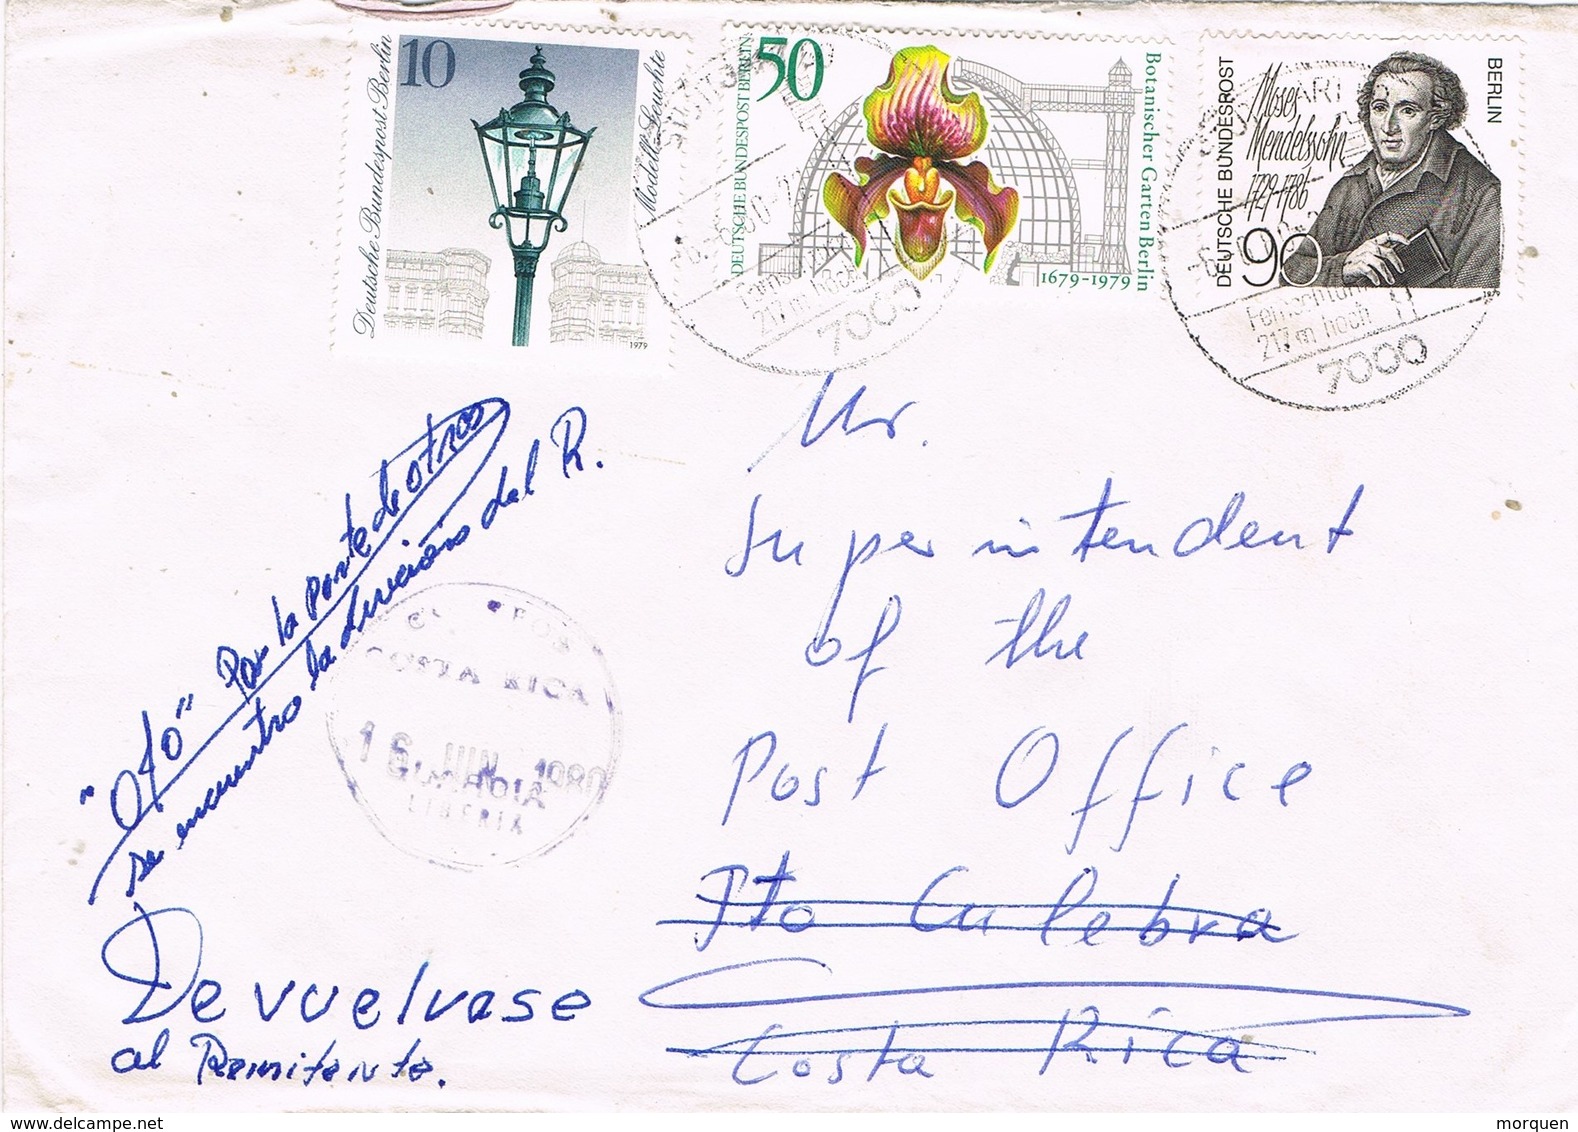 10
Deutsche Bundespost Berlin
Modell-Leuchte
1979
50
DEUTSCHE BUNDESPOST BERLIN
Botanischer Garten Berlin
1679-1979
DEUTSCHE BUNDESPOST
BERLIN
Moses
Mendelssohn
1729-1786
90
1979
217 m hoch
7000
Fernsehturm
217 m hoch
7000
Mr.
Superintendent
of the
Post Office
Pto Culebra
Costa Rica
"OJO" Por la parte de otros
se encuentro la dirección del R.
Devuelvase
al Remitente.
LIBERIA
morquen